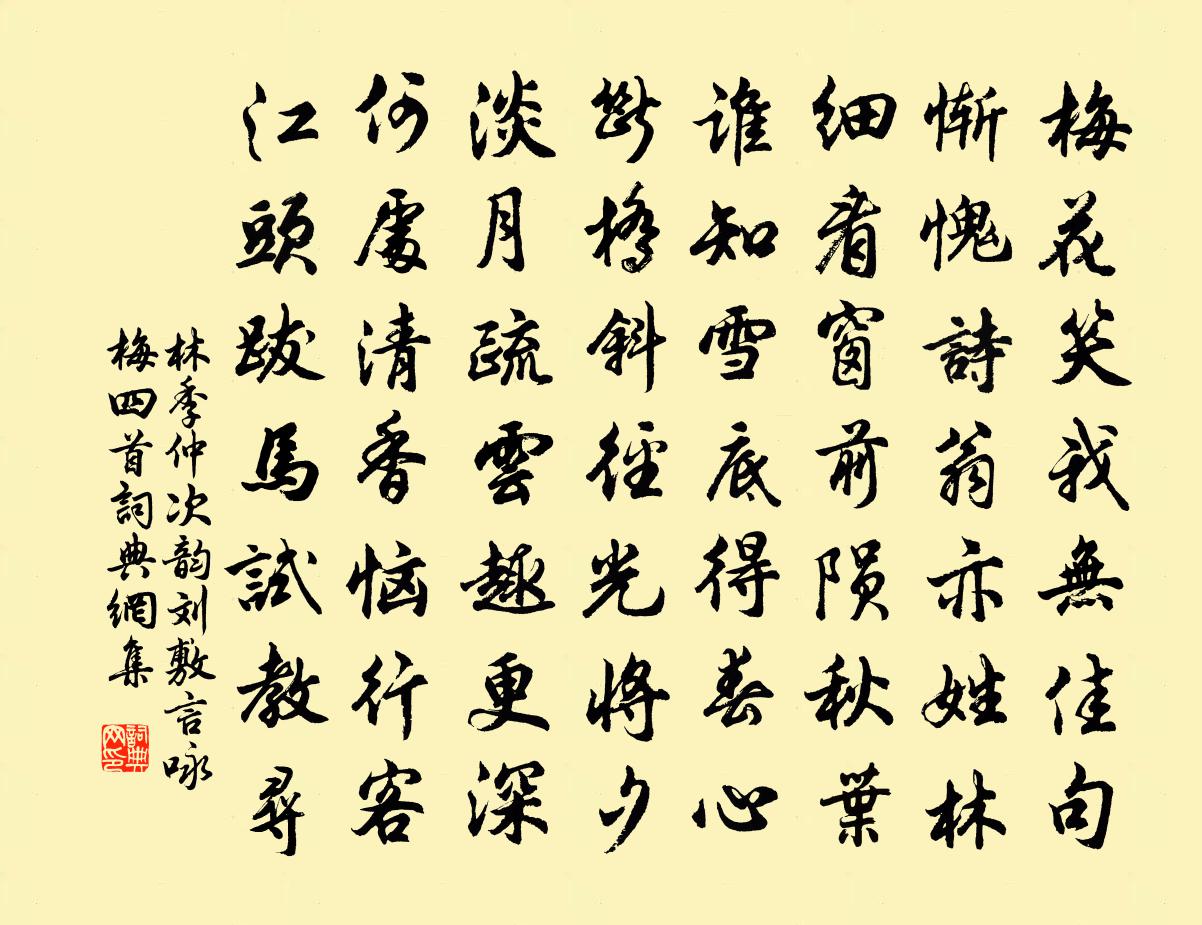 梅花笑我無佳句
慚愧詩翁亦姓林
細看窗前隕秋葉
誰知雪底得春心
斷橋斜徑光將夕
淡月疏雲趣更深
何處清香惱行客
江頭跋馬試教尋
林季仲次韵刘敷言咏
梅四首詞典網集
詞典
网印